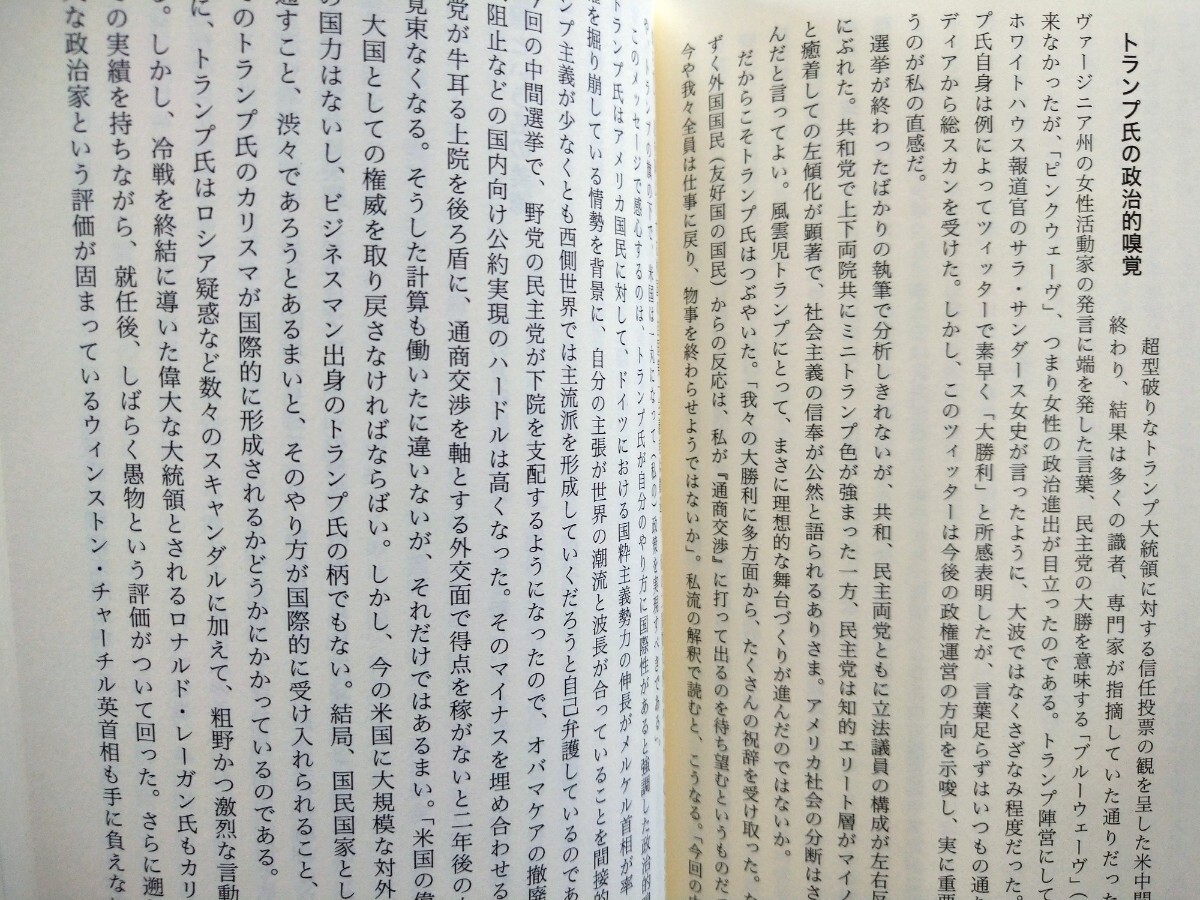 トランプ氏の政治的嗅覚
超型破りなトランプ大統領に対する信任投票の観を呈した米中間
終わり、結果は多くの識者、専門家が指摘していた通りだった
ヴァージニア州の女性活動家の発言に端を発した言葉、民主党の大勝を意味する「ブルーウェーヴ」（
来なかったが、「ピンクウェーヴ」、つまり女性の政治進出が目立ったのである。トランプ陣営にして
ホワイトハウス報道官のサラ・サンダース女史が言ったように、大波ではなくさざなみ程度だった。
プ氏自身は例によってツィッターで素早く「大勝利」と所感表明したが、言葉足らずはいつもの通り
ディアから総スカンを受けた。しかし、このツィッターは今後の政権運営の方向を示唆し、実に重要
うのが私の直感だ。
選挙が終わったばかりの執筆で分析しきれないが、共和、民主両党ともに立法議員の構成が左右に
にぶれた。共和党で上下両院共にミニトランプ色が強まった一方、民主党は知的エリート層がマイノ
と癒着しての左傾化が顕著で、社会主義の信奉が公然と語られるありさま。アメリカ社会の分断はさ
んだと言ってよい。風雲児トランプにとって、まさに理想的な舞台づくりが進んだのではないか。
だからこそトランプ氏はつぶやいた。「我々の大勝利に多方面から、たくさんの祝辞を受け取った。な
ずく外国国民（友好国の国民）からの反応は、私が『通商交渉』に打って出るのを待ち望むというものだっ
今や我々全員は仕事に戻り、物事を終わらせようではないか」。私流の解釈で読むと、こうなる。「今回の
米国は一丸になって（私の）政策を実現すべきである」。
このメッセージで感心するのは、トランプ氏が自分のやり方に国際性があると強調した政治的
トランプ氏はアメリカ国民に対して、ドイツにおける国粋主義勢力の伸長がメルケル首相が率
を掘り崩している情勢を背景に、自分の主張が世界の潮流と波長が合っていることを間接的
ンプ主義が少なくとも西側世界では主流派を形成していくだろうと自己弁護しているのであ
今回の中間選挙で、野党の民主党が下院を支配するようになったので、オバマケアの撤廃
阻止などの国内向け公約実現のハードルは高くなった。そのマイナスを埋め合わせる
党が牛耳る上院を後ろ盾に、通商交渉を軸とする外交面で得点を稼がないと二年後の
覚束なくなる。そうした計算も働いたに違いないが、それだけではあるまい。「米国の偉
大国としての権威を取り戻さなければならばい。しかし、今の米国に大規模な対外
の国力はないし、ビジネスマン出身のトランプ氏の柄でもない。結局、国民国家とし
通すこと、渋々であろうとあるまいと、そのやり方が国際的に受け入れられること、
そのトランプ氏のカリスマが国際的に形成されるかどうかにかかっているのである。
に、トランプ氏はロシア疑惑など数々のスキャンダルに加えて、粗野かつ激烈な言動
る。しかし、冷戦を終結に導いた偉大な大統領とされるロナルド・レーガン氏もカリ
の実績を持ちながら、就任後、しばらく愚物という評価がついて回った。さらに遡
な政治家という評価が固まっているウィンストン・チャーチル英首相も手に負えな